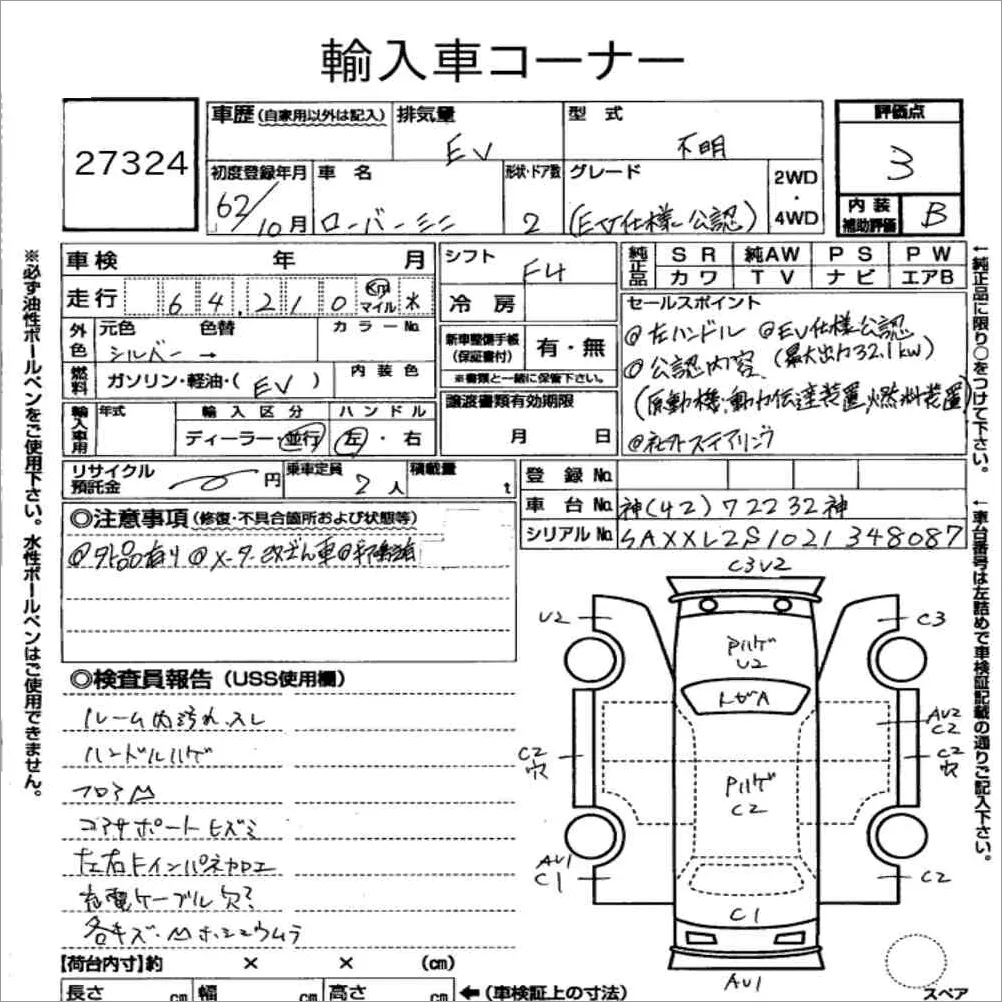 輸入車コーナー
27324
車歴 (自家用以外は記入)
排気量
EV
型式
不明
評価点
3
初度登録年月
62/10月
車名
ローバーミニ
形状・ドア数
2
グレード
(EV仕様公認)
2WD
・
4WD
内装
補助評価
B
車検 年 月
走行 64,210 Km マイル
シフト
F4
冷房
純正品
SR 純AW PS PW
カワ TV ナビ エアB
外色
元色 色替 カラーNo.
シルバー →
燃料
ガソリン・軽油・( EV )
内装色
新車整備手帳
(保証書付)
有・無
※書類と一緒に保管下さい。
セールスポイント
@左ハンドル @EV仕様公認
@公認内容 (最大出力32.1kw)
(原動機・動力伝達装置、燃料装置)
@社外ステアリング
輸入車用
年式
輸入区分
ハンドル
ディーラー・並行
左・右
譲渡書類有効期限
月 日
リサイクル
預託金
円
乗車定員
2人
積載量
t
登録No.
車台No. 神(42)72232神
シリアルNo. SAXXL2S1021348087
◎注意事項 (修復・不具合箇所および状態等)
@欠品有り @メーター改ざん車
◎検査員報告 (USS使用欄)
ルーム内汚れ、スレ
ハンドルハゲ
フロアM
コアサポートヒズミ
左右ドインパネカロエ
充電ケーブル欠
各キズ・M
C3U2
U2
C3
Pハゲ
U2
トビA
AU2
C2
C2
穴
C2
穴
Pハゲ
C2
AU1
C1
C2
C1
AU1
スペア
【荷台内寸】約 × × (cm)
長さ cm 幅 cm 高さ cm ←(車検証上の寸法)
※必ず油性ボールペンをご使用下さい。水性ボールペンはご使用できません。
←純正品に限り○をつけて下さい。
←車台番号は左詰めで車検証記載の通りご記入下さい。